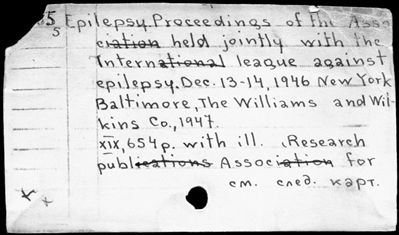 55 Epilepsy. Proceedings of the Asso
ciation held jointly with the
International league against
epilepsy. Dec. 13-14, 1946 New York
Baltimore, The Williams and Wil-
kins Co., 1947.
XIX, 654 p. with ill. (Research
publications Association for
см. след. карт.